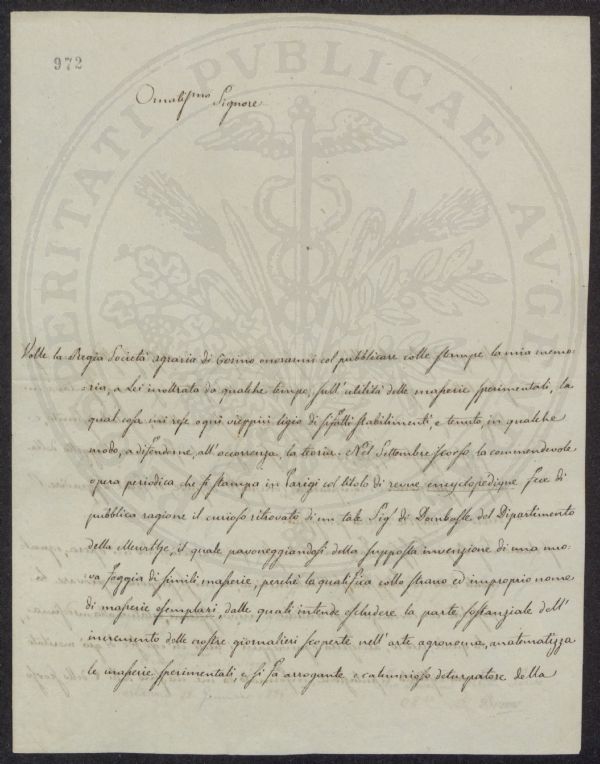 972
VERITATI PVBLICAE AVGE
Ornatissmo Signore
Volle la Regia Società agraria di Torino onorarmi col pubblicare colle stampe la mia memo-
=ria, a Lei inoltrata da qualche tempo, sull'utilità delle masserie sperimentali, la
qual cosa mi rese ognì vieppiù ligio di sifatti stabilimenti, e tenuto, in qualche
modo, a difenderne, all'occorrenza, la teoria. Nel Settembre scorso la commendevole
opera periodica che si stampa in Parigi col titolo di revue encyclopedique fece di
pubblica ragione il curioso ritrovato di un tale Sigr di Dombasle del Dipartimento
della Meurthe, il quale pavoneggiandosi della supposta invenzione di una nuo-
va foggia di simili masserie, perchè la qualifica collo strano ed improprio nome
di masserie esemplari, dalle quali intende escludere la parte sostanziale dell'
incremento delle nostre giornalieri scoperte nell'arte agronoma, anatematizza
le masserie sperimentali, e si fa arrogante e calunnioso deturpatore della